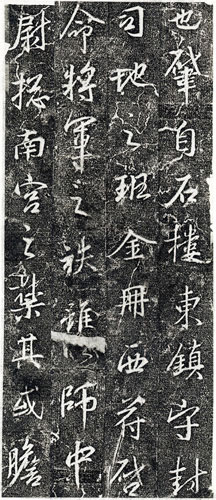 也肇自石樓東鎮守封
司地之班金冊西符啓
命將軍之袟雖師中
尉揔南宮之其或瞻